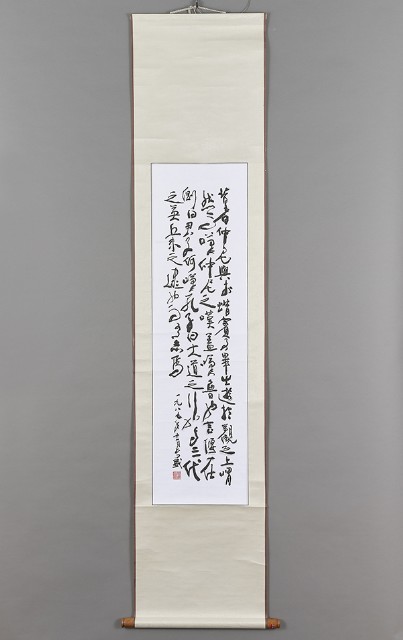 昔者仲尼與於蜡賓事畢出遊於觀之上喟
然而嘆仲尼之嘆蓋嘆魯也言偃在
側曰君子何嘆孔子曰大道之行也與三代
之英丘未之逮也而有志焉
一九八五年